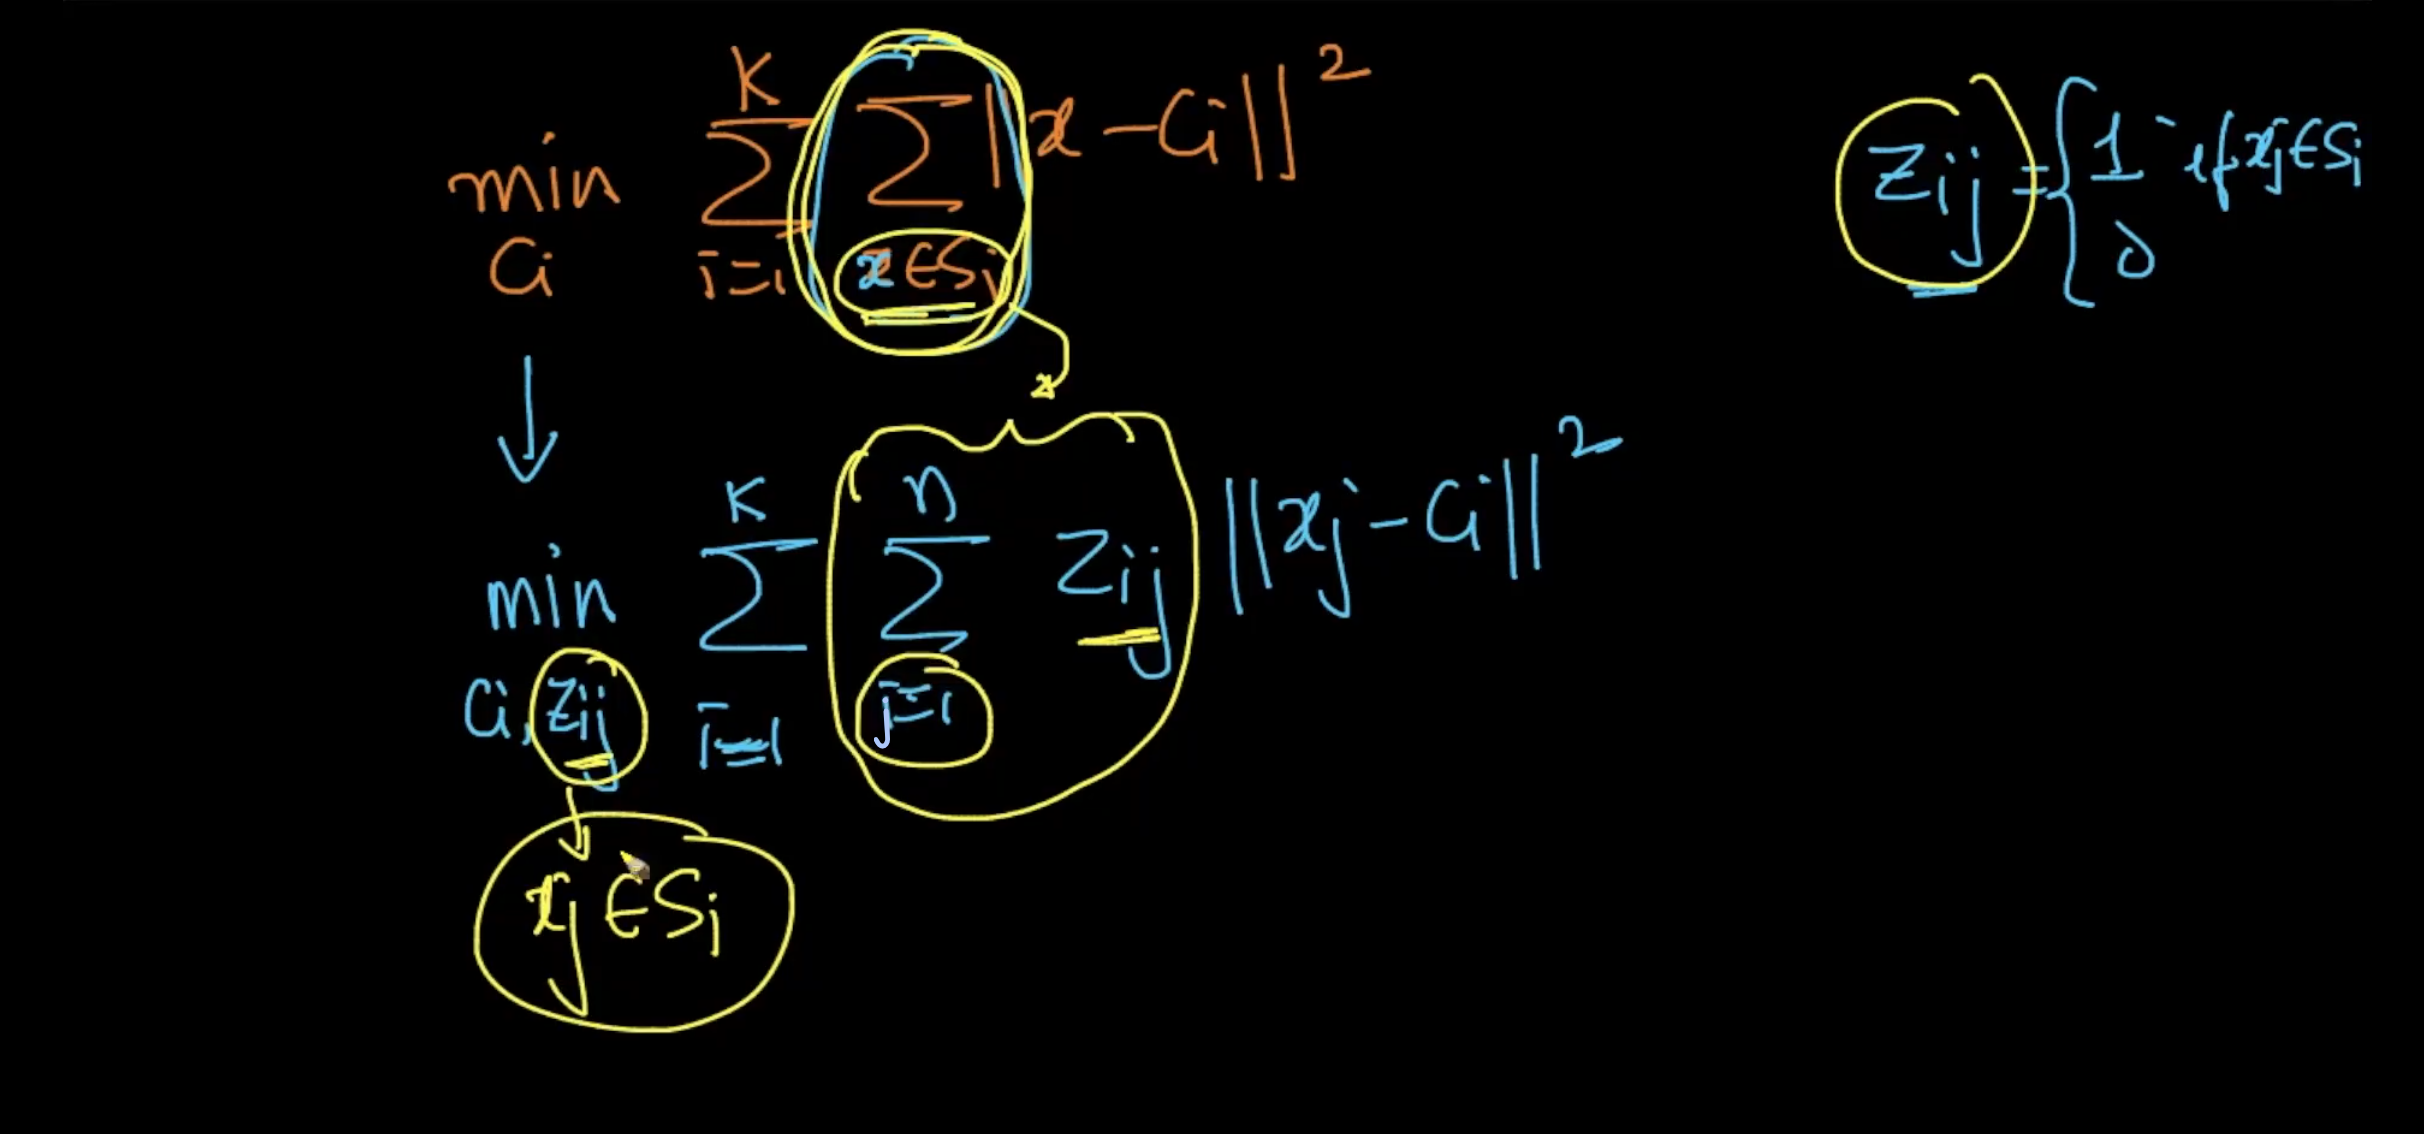 min Ci K ∑ i=1 ∑ x∈Si ||x-Ci||²
Zij = { 1 if xj∈Si
0
min Ci, Zij K ∑ i=1 n ∑ j=1 Zij ||xj-Ci||²
xj∈Si